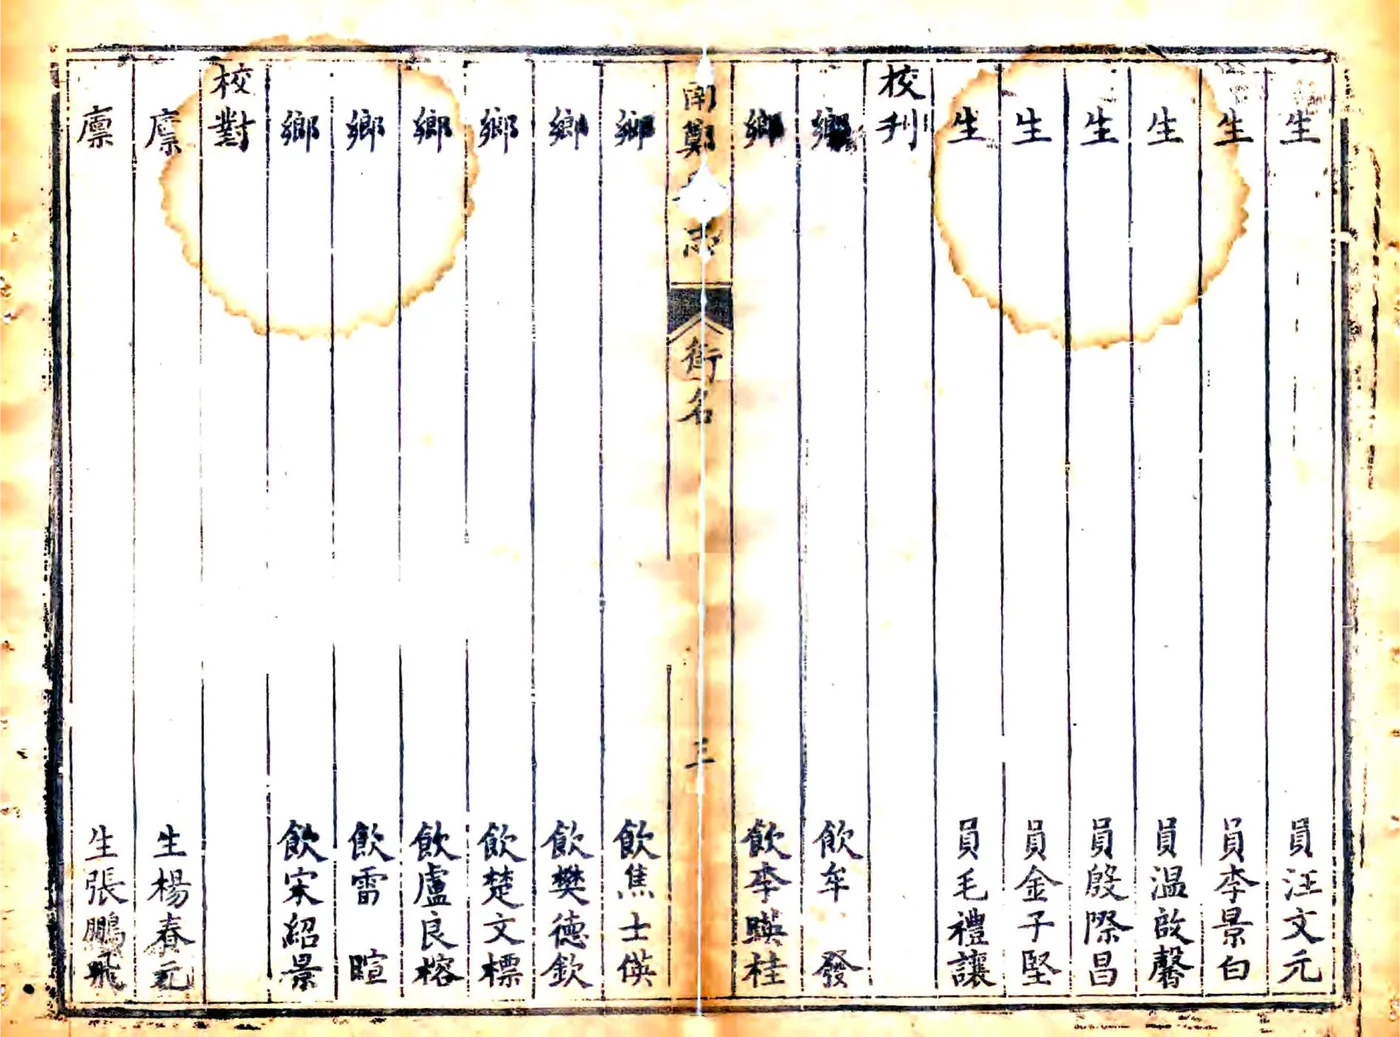 生員汪文元
生員李景白
生員温啟馨
生員殷際昌
生員金子堅
生員毛禮讓
校刋
鄉飲牟發
鄉飲李暎桂
開鄭志
銜名
三
鄉飲焦士偀
鄉飲樊德欽
鄉飲楚文標
鄉飲盧良榕
鄉飲雷暄
鄉飲宋紹景
校對
廪生楊春元
廪生張鵬飛